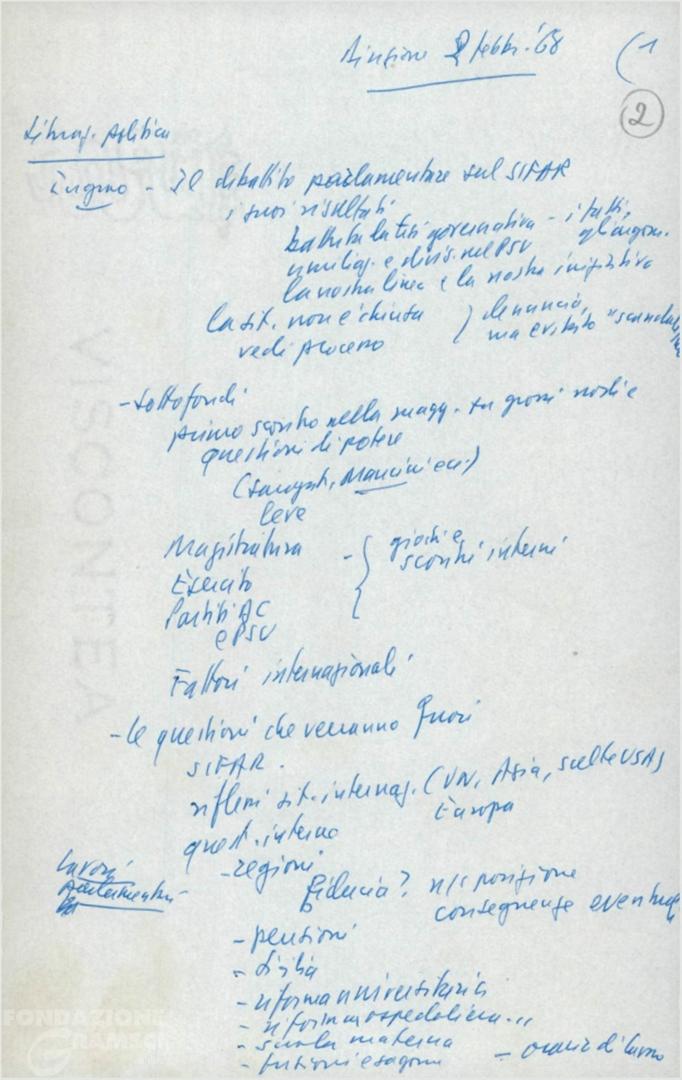 Direzione 2 febbr. '68
(1
2
Situaz. politica
Ingrao - Il dibattito parlamentare sul SIFAR
i suoi risultati
battuta la tesi governativa - i fatti,
gli argom.
umiliaz. e divis. nel PSU
la nostra linea e la nostra iniziativa
la sit. non è chiusa
vedi processo
) denuncia,
ma evitato
- Sottofondi
primo scontro nella magg. su grossi nodi e
questioni di potere
Mancini ecc.)
leve
Magistratura
Esercito
Partiti DC
e PSU
- { giochi e
scontri interni
Fattori internazionali
- le questioni che verranno fuori
SIFAR.
riflessi sit. internaz. (VN, Asia, scelte USA)
Europa
quest. interne
lavori
parlamentari
- regioni
fiducia? ns posizione
conseguenze
- pensioni
- Sicilia
- riforma universitaria
- riforma ospedaliera
- scuola materna
- orario di lavoro
VISCONTEA
FONDAZIONE
GRAMSCI